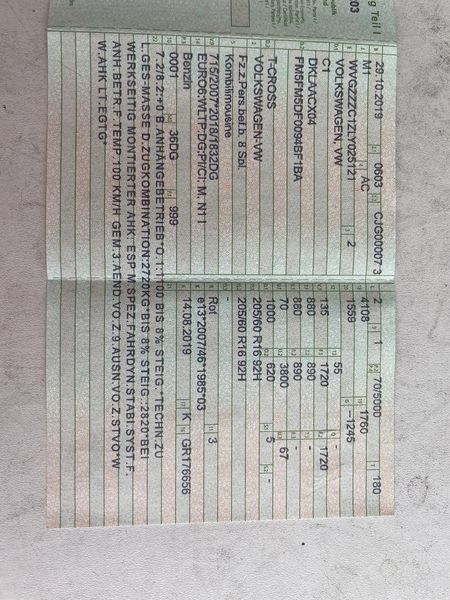 29.10.2019 0603 CJG00007 3
M1 AC
WVGZZZC1ZLY025121 2
VOLKSWAGEN, VW
C1
DKLAACX04
FM5FM5DF0094BF1BA
T-CROSS
VOLKSWAGEN-VW
Fz.z.Pers.bef.b. 8 Spl.
Kombilimousine
715/2007*2018/1832DG
EURO6;WLTP;DG;PI/CI: M, N1 I
Benzin
0001 36DG 999
2 1 70/5000 180
4108 1760
1559 –1245
55 -
135 1720 1720
880 890 -
880 890 -
70 3800 67
1000 620 5 -
205/60 R16 92H
205/60 R16 92H
-
Rot 3
e13*2007/46*1985*03
14.08.2019 K GR176656
7.2/8.2:+0 B.ANHÄNGEBETRIEB*O.1:1100 BIS 8% STEIG.*TECHN.ZU
L.GES-MASSE D.ZUGKOMBINATION:2720KG*BIS 8% STEIG.:2820*BEI
WERKSEITIG MONTIERTER AHK: ESP M.SPEZ.FAHRDYN.STABI.SYST.F.
ANH.BETR.F.TEMP.100 KM/H GEM.3.AEND.VO.Z.9.AUSN.VO.Z.STVO*W
W.AHK LT.EGTG*